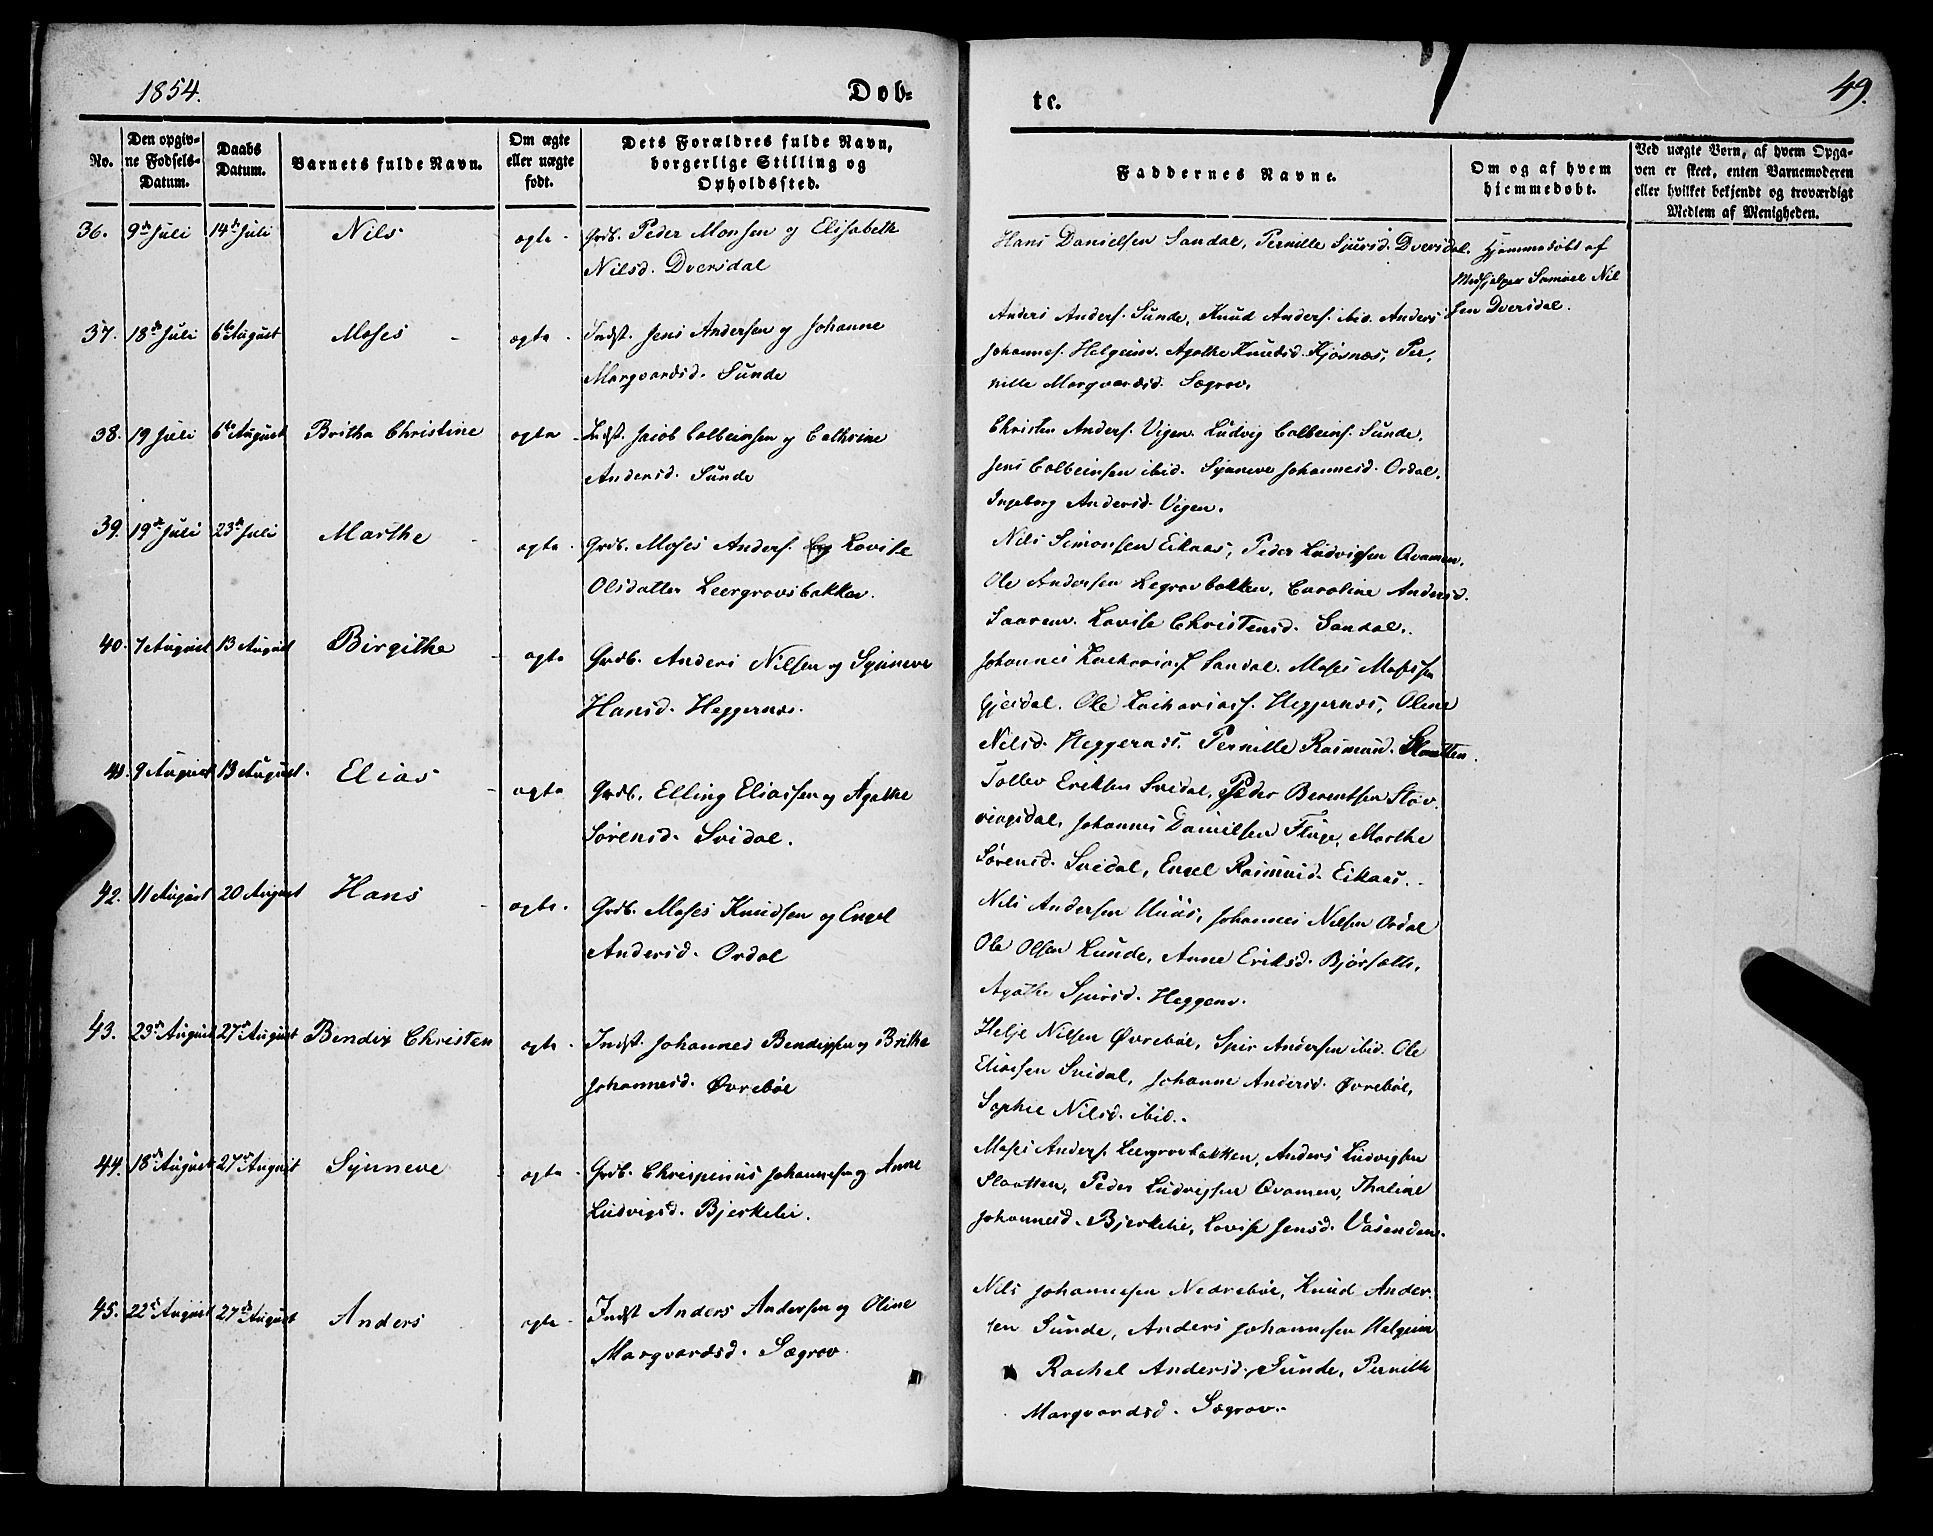 1854.
Døb=
te.
49.
No.
Den opgiv-
ne Fødsels-
Datum.
Daabs
Datum.
Barnets fulde Navn.
Om ægte
eller uægte
født.
Dets Forældres fulde Navn,
borgerlige Stilling og
Opholdssted.
Faddernes Navne.
Om og af hvem
hjemmedøbt.
Ved uægte Børn, af hvem Opga-
ven er skeet, enten Barnemoderen
eller hvilket bekjendt og troværdigt
Medlem af Menigheden.
36. 9de Juli 14de Juli Nils ægte Grdb. Peder Monsen og Elisabeth
Nilsd. Dvergsdal
Hans Danielsen Sandal, Pernille Sjursd. Dvergsdal.
Hjemmedøbt af
Medhjelper Samuel Nil
sen Dvergsdal.
37. 18de Juli 6te August Moses ægte Indst. Jens Andersen og Johanne
Margvardsd. Sunde
Anders Anders. Sunde, Knud Anders. ibid. Anders
Johannes. Helgeim. Agathe Knudsd. Kjøsnæs, Per,
nille Margvardsd. Søgrov.
38. 19 Juli 6te August Britha Christine ægte Indst. Jacob Colbeinsen og Cathrine
Andersd. Sunde
Christen Anders. Vigen. Ludvig Colbeins. Sunde,
Jens Colbeinsen ibid. Synneve Johannesd. Ordal.
Ingeborg Andersd. Vigen.
39. 19de Juli 23de Juli Marthe ægte Grdb. Moses Anders. og Lovise
Olsdatter Leergrovsbakken.
Nils Simonsen Eikaas, Peder Ludvigsen Qvamen,
Ole Andersen Legrovbakken, Caroline Andersd.
Saaren. Lovise Christensd. Sandal.
40. 7 August 13 August Birgithe ægte Grdb. Anders Nilsen og Synneve
Hansd. Heggernæs.
Johannes Zachariass. Sandal. Moses Mosessen
Gjesdal. Ole Zachariass. Heggernæs, Oline
Nilsd. Heggernæs. Pernille Rasmusd. Slaatten.
41. 9 August 13 August. Elias ægte Grdb. Elling Eliassen og Agathe
Sørensd. Svidal.
Tollev Eriksen Svidal, Peder Berentsen Støv
ringsdal, Johannes Danielsen Fluge, Marthe
Sørensd. Svidal, Engel Rasmusd. Eikaas.
42. 11 August 20 August Hans ægte. Grdb. Moses Knudsen og Engel
Andersd. Ordal
Nils Andersen Huus, Johannes Nilsen Ordal
Ole Olsen Lunde, Anne Eriksd. Bjørsæth,
Agathe Sjursd. Heggene.
43. 23de August 27de August Bendix Christen ægte Indst. Johannes Bendixsen og Brithe
Johannesd. Øvrebøe
Helje Nilsen Øvrebøe, Spir Andersen ibid. Ole
Eliassen Svidal, Johanne Andersd. Øvrebøe,
Sophie Nilsd. ibid.
44. 18de August 27de August Synneve ægte Grdb. Chrispinus Johannesen og Anne
Ludvigsd. Bjerkelie.
Moses Anders. Leergrovbakken, Anders Ludvigsen
Slaatten, Peder Ludvigsen Qvamen, Thaline
Johannesd. Bjerkelie, Lovise Jensd. Vasenden.
45. 22de August 27de August Anders ægte Indst Anders Andersen og Oline
Margvardsd. Søgrov.
Nils Johannesen Nedrebøe, Knud Ander
sen Sunde, Anders Johannesen Helgeim
Rachel Andersd. Sunde, Pernille
Margvardsd. Søgrov.